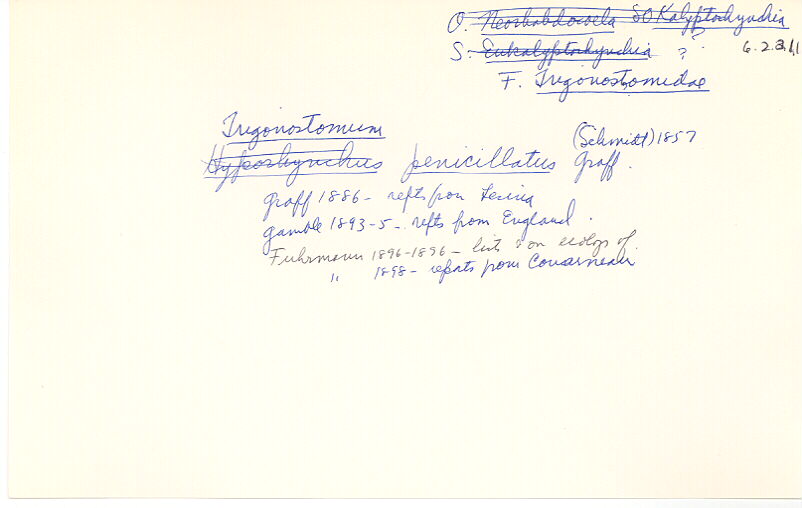 O. Neorhabdocoela SO Kalyptorhynchia
S. Eukalyptorhynchia ? ? 6.2.2.1.1
F. Trigonostomidae
Trigonostomum
(Schmidt) 1857
Hyporhynchus penicillatus Graff.
Graff 1886 - repts from Lesina
Gamble 1893-5 - repts from England.
Fuhrmann 1896-1896 - lists & on ecology of.
" 1898 - reports from Concarneau